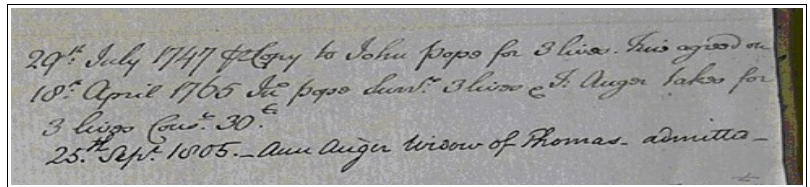 29th July 1747 Copy to John Pope for 3 lives. Fine agreed on
18th April 1765 Jno Pope surrs 3 lives & T. Auger takes for
3 lives Cons. 30£
25th Sepr 1805. - Ann Auger Widow of Thomas - admitta -